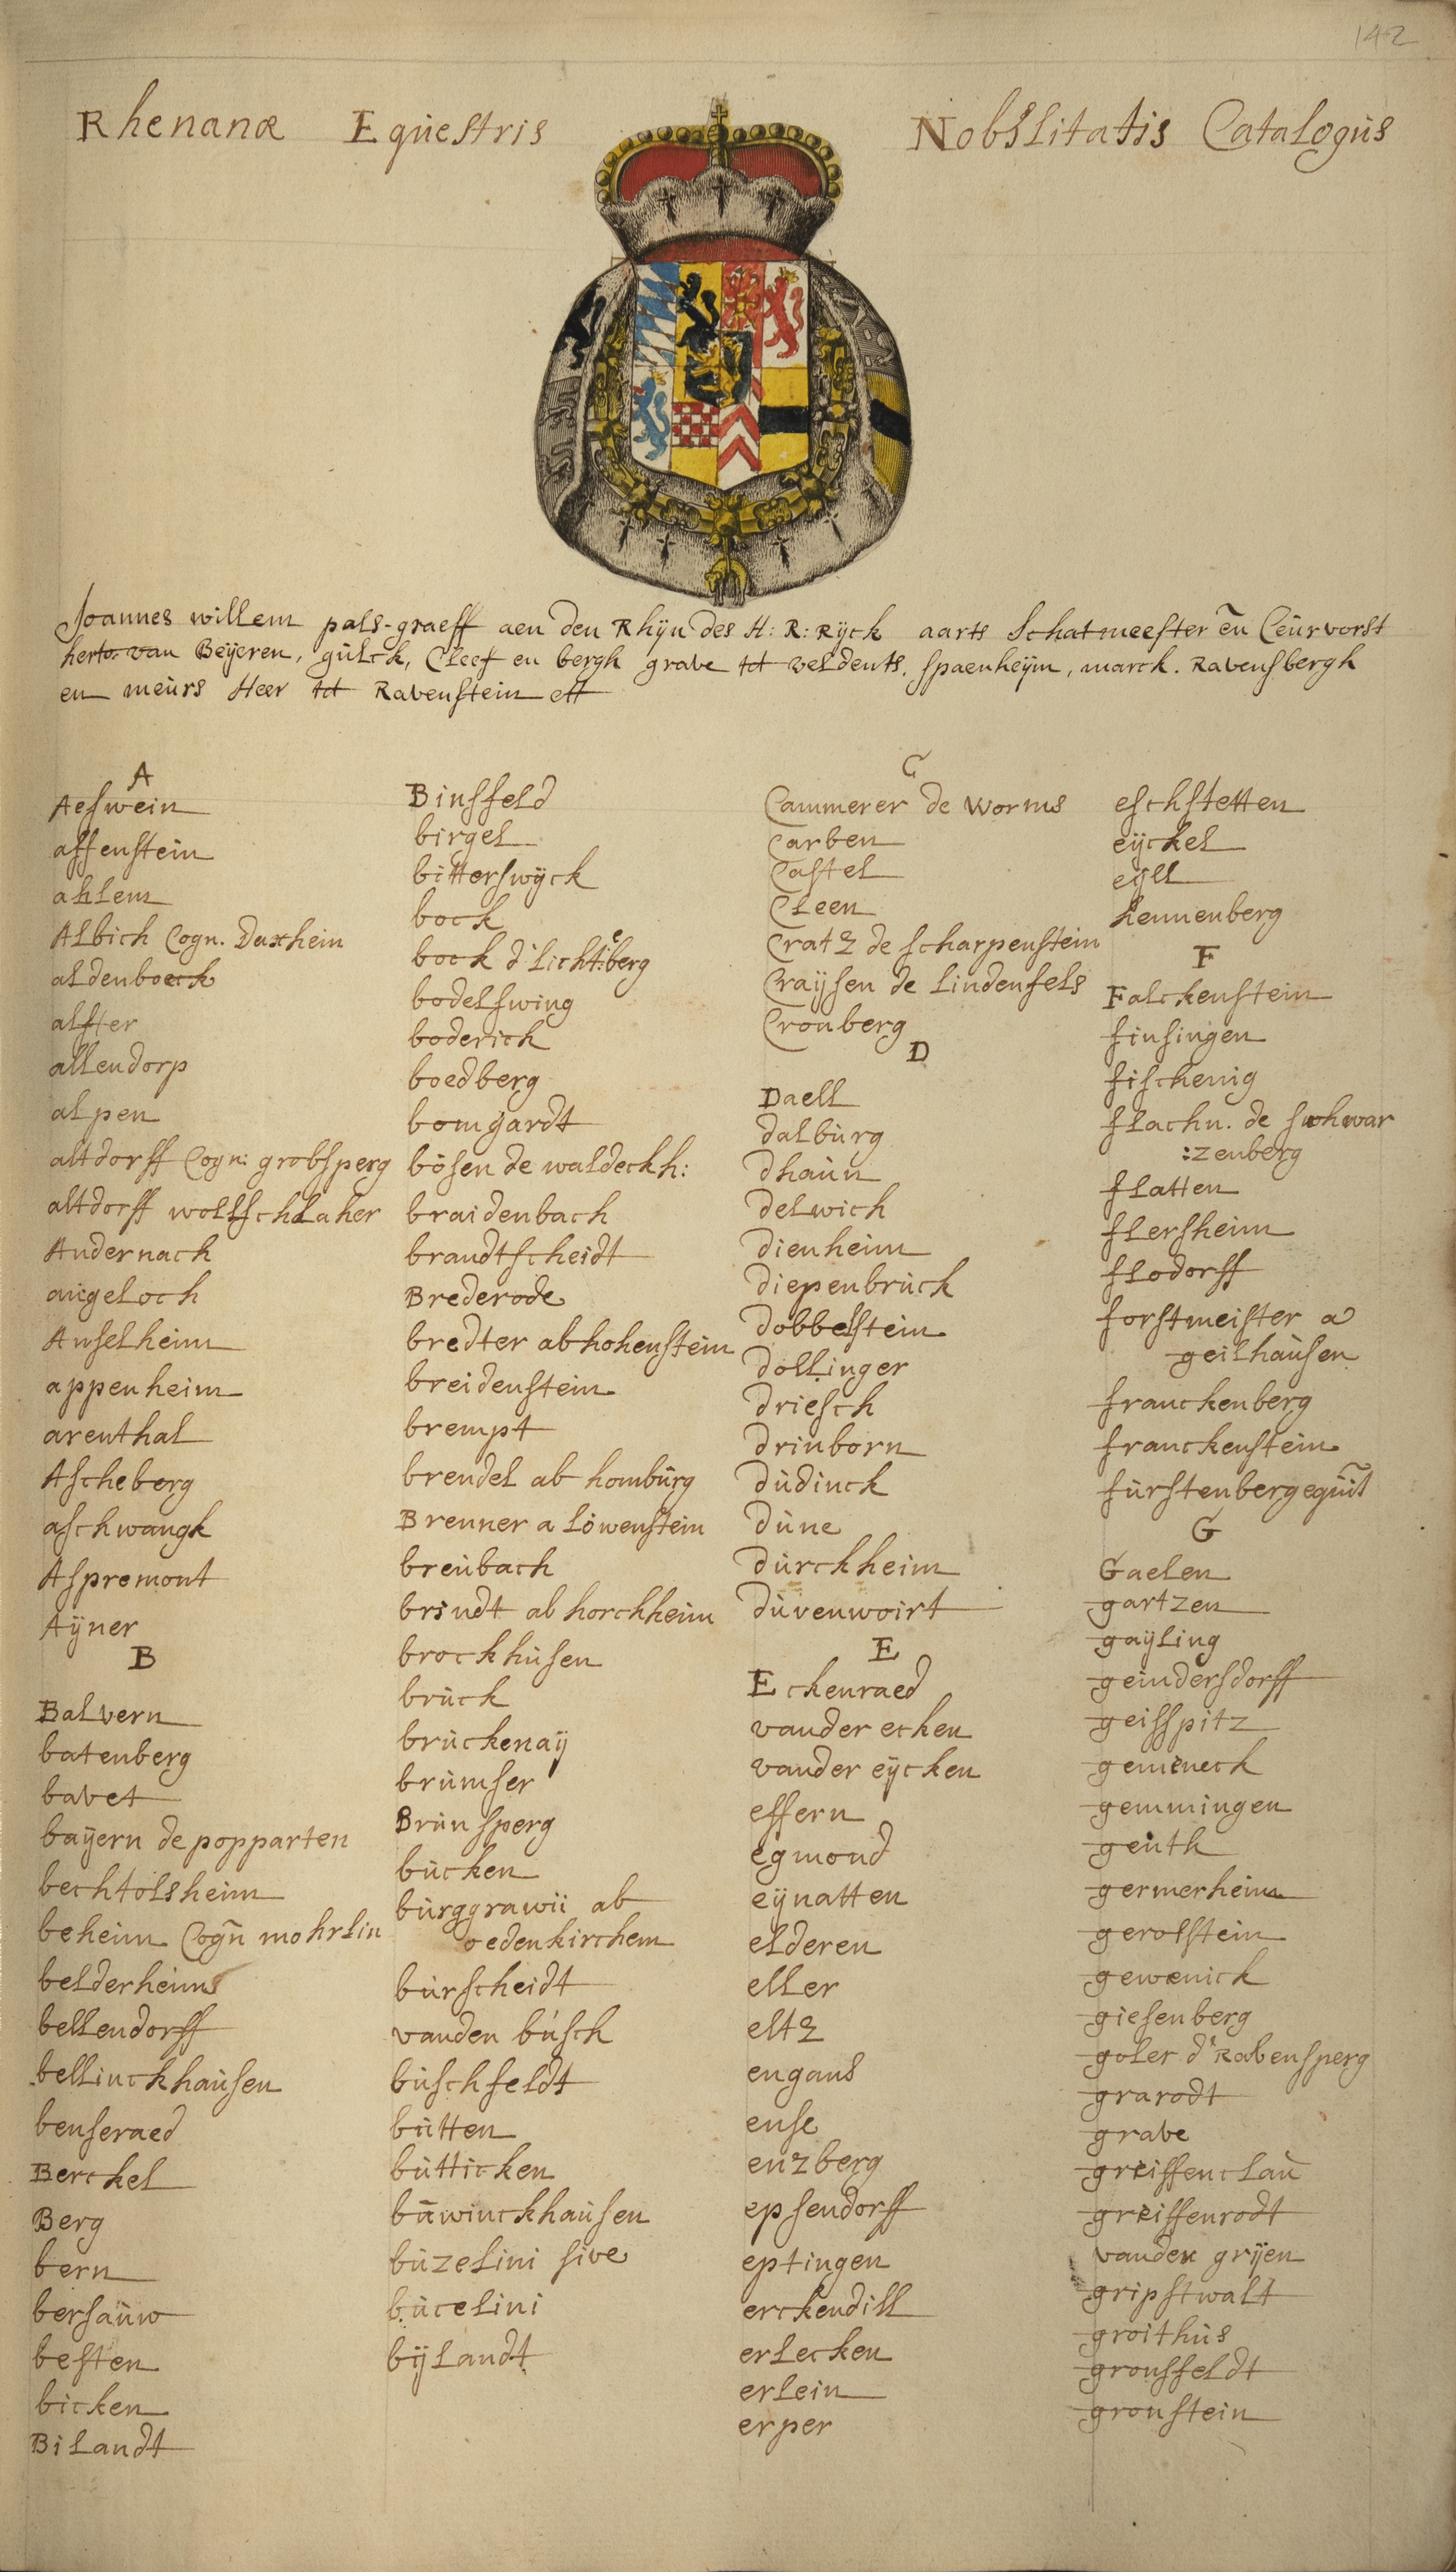 142
Rhenanæ Equestris Nobilitatis Catalogus
Joannes willem pals-graeff aen den Rhijn des H: R: Rijck aarts Schatmeester en̄ Ceurvorst
herto. van Beijeren, gulck, Cleef en bergh grave tot veldents, spaenheijm, marck. Ravensbergh
en meurs Heer tot Ravenstein ett
A
Aeswein
affenstein
ahlem
Albich Cogn. Daxhein
aldenboeck
alfter
allendorp
alpen
altdorff Cogn: grobsperg
altdorff wollschlaher
Andernach
angeloch
Anselheim
appenheim
arenthal
Ascheberg
aschwangk
Aspremont
Aÿner
B
Balvern
batenberg
bavet
bayern de popparten
bechtolsheim
beheim Cogn̄ mohrlin
belderheims
bellendorff
bellinckhausen
benseraed
Berckel
Berg
bern
bersauw
besten
bicken
Bilandt
Binsfeld
birgel
bitterswijck
bock
bock d'licht:eberg
bodelswing
boderich
boedberg
bomgardt
bosen de waldeckh:
braidenbach
brandtscheidt
Brederode
bredter ab hohenstein
breidenstein
brempt
brendel ab homburg
Brenner a lowenstein
breubach
brindt ab horchheim
brockhusen
bruck
bruckenaij
brumser
Brunsperg
bucken
burggrawii ab
oedenkirchem
burscheidt
vanden busch
buschfeldt
butten
butticken
buwinckhausen
buzelini sive
bucelini
bijlandt
C
Cammerer de worms
Carben
Castel
Cleen
Cratz de scharpenstein
Craijsen de lindenfels
Cronberg
D
Daell
dalburg
dhaun
delwich
dienheim
diepenbruck
dobbelstein
dollinger
driesch
drinborn
dudinck
dune
durckheim
duvenwoirt
E
Eckenraed
vander ecken
vander eycken
effern
egmond
eynatten
elderen
eller
eltz
engans
ense
enzberg
epsendorff
eptingen
erckendill
erlecken
erlein
erper
eschstetten
eyckel
eyll
hennenberg
F
Falckenstein
finsingen
fischenig
flachn. de schwar
:zenberg
flatten
flersheim
flodorff
forstmeister a
geilhausen
franckenberg
franckenstein
G
Gaelen
gartzen
gayling
geindersdorff
geisspitz
gemeneck
gemmingen
geuth
germerheim
gerolstein
gewenick
giesenberg
goler d' Rabensperg
grarodt
grave
greiffenclau
greiffenrodt
vander grijen
gripstwalt
groithus
gronsfeldt
gronstein